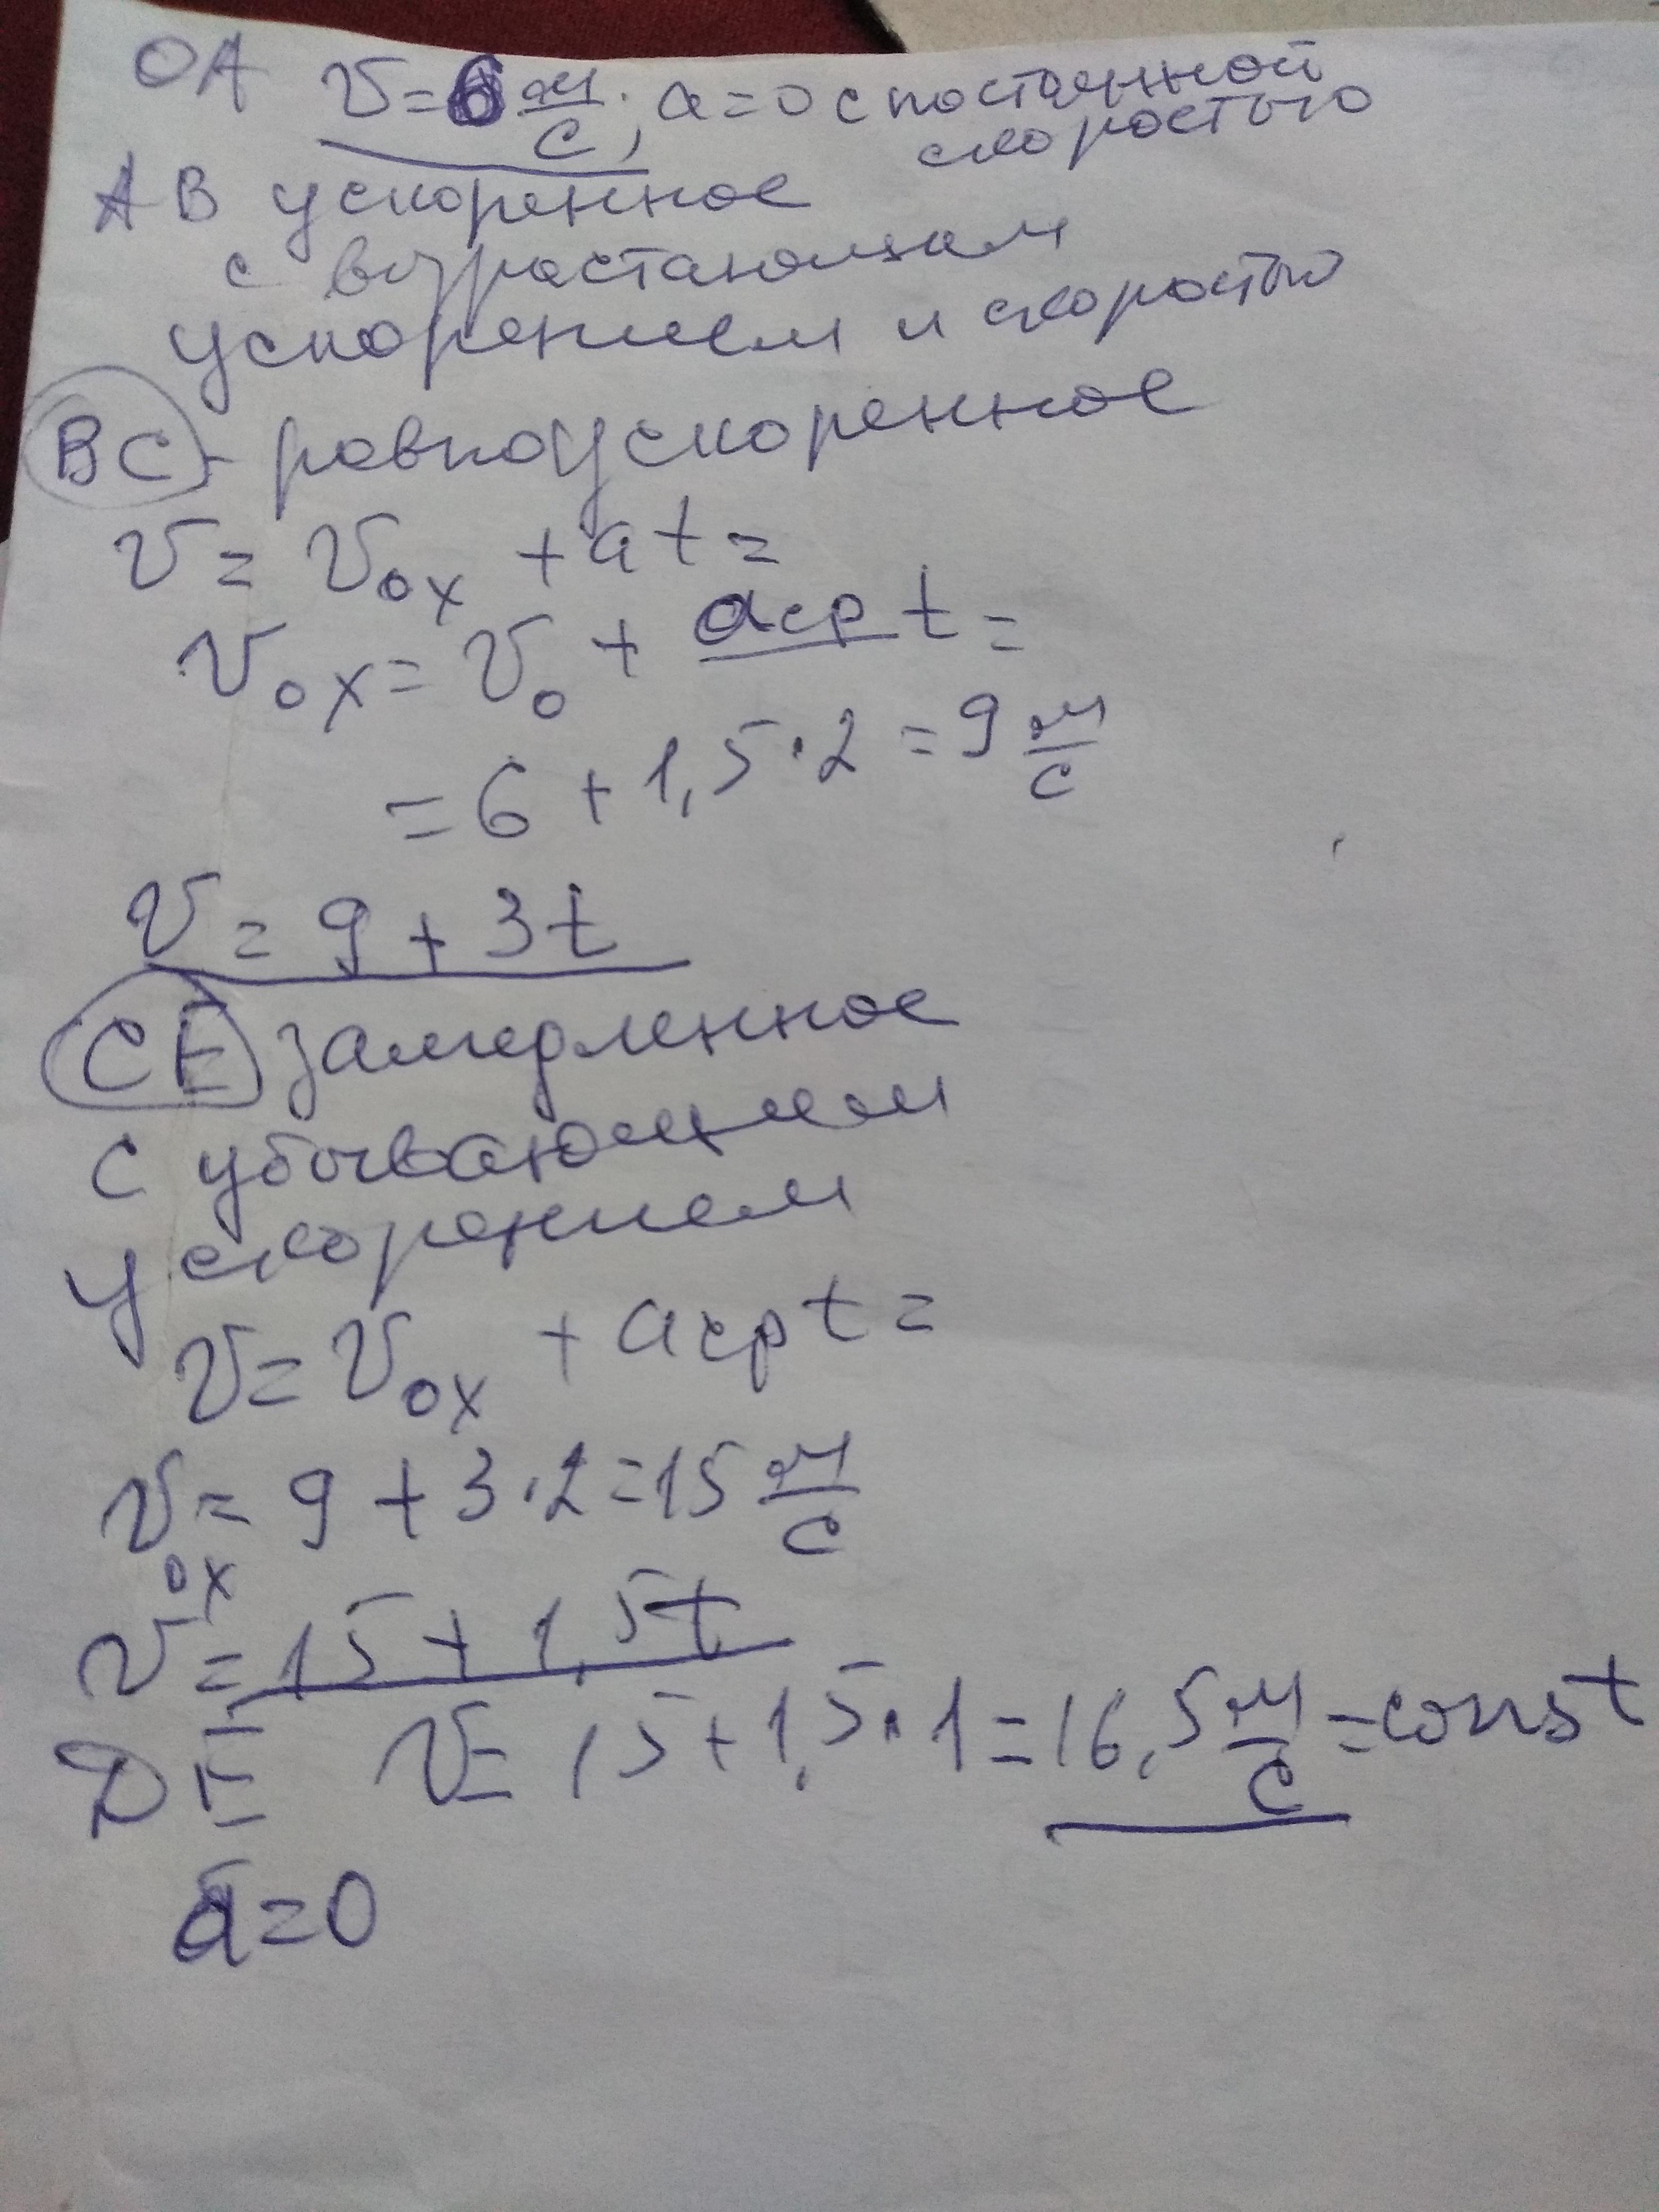 OA v=6 м/с, a=0 с постоянной
скоростью
AB ускоренное
с возрастающим
ускорением и скоростью
BC - равноускоренное
v = v₀ₓ + at =
v₀ₓ = v₀ + aср t =
= 6 + 1,5·2 = 9 м/с
v = 9 + 3t
CE замедленное
с убывающим
ускорением
v = v₀ₓ + aср t =
v₀ₓ = 9 + 3·2 = 15 м/с
v = 15 + 1,5t
DE v = 15 + 1,5·1 = 16,5 м/с = const
a=0